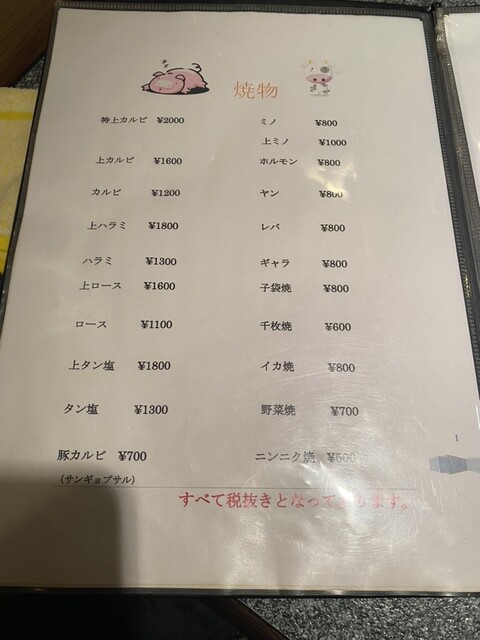 焼物
特上カルビ ¥2000
上カルビ ¥1600
カルビ ¥1200
上ハラミ ¥1800
ハラミ ¥1300
上ロース ¥1600
ロース ¥1100
上タン塩 ¥1800
タン塩 ¥1300
豚カルビ ¥700
(サンギョプサル)
ミノ ¥800
上ミノ ¥1000
ホルモン ¥800
ヤン ¥800
レバ ¥800
ギャラ ¥800
子袋焼 ¥800
千枚焼 ¥600
イカ焼 ¥800
野菜焼 ¥700
ニンニク焼 ¥500
すべて税抜きとなっております。
1